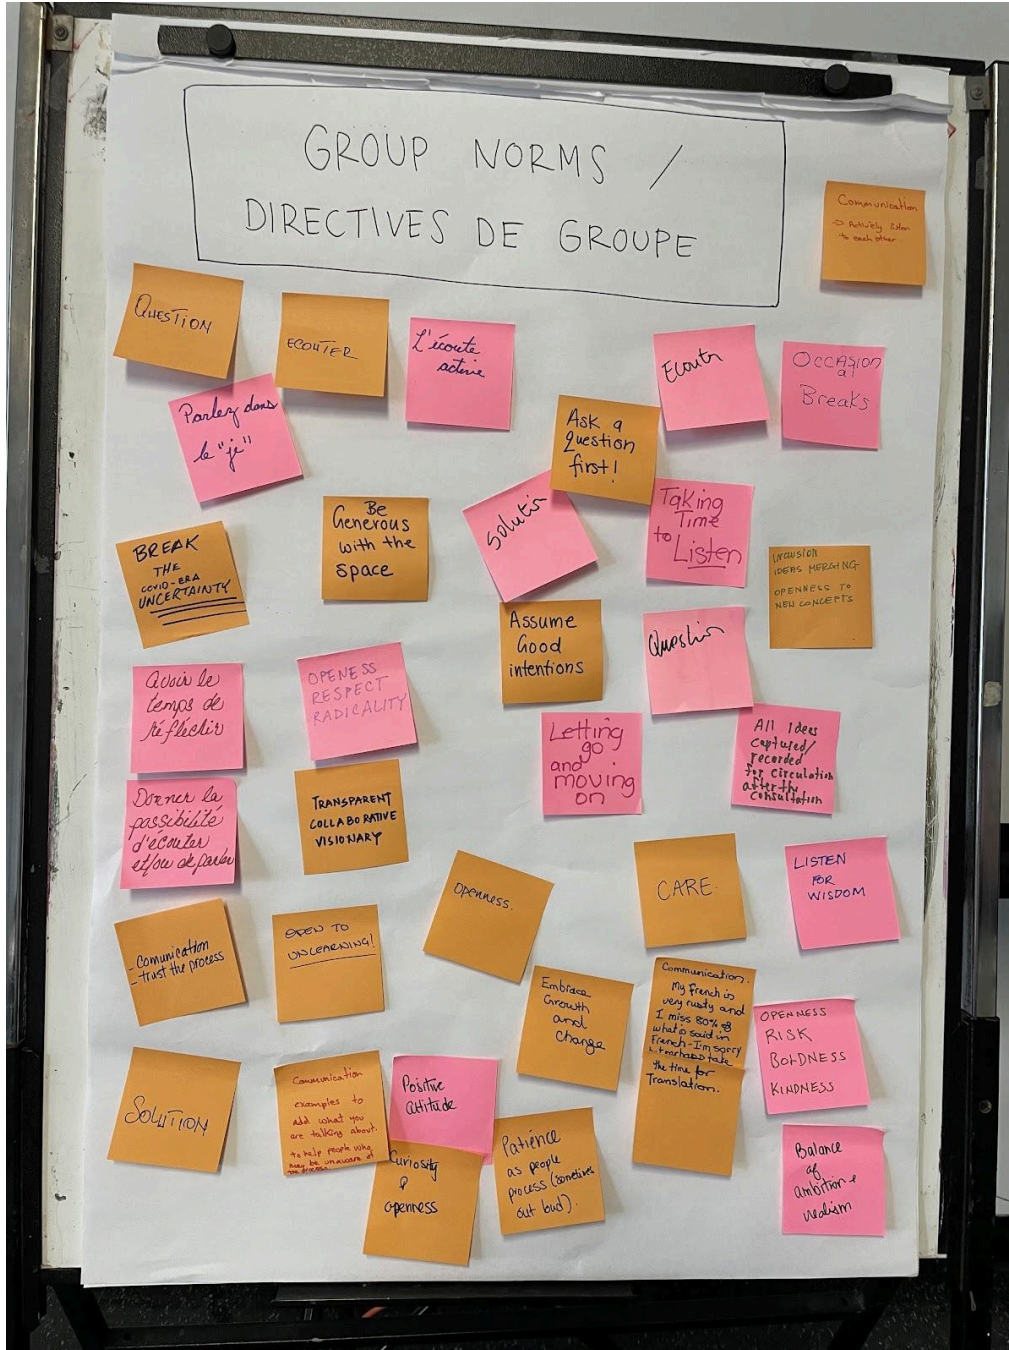 GROUP NORMS /
DIRECTIVES DE GROUPE
Communication
→ Actively listen
to each other
QUESTION
ECOUTER
L'écoute
active
Ecouter
OCCASIONal
Breaks
Parlez dans
le "je"
Ask a
Question
first!
BREAK
THE
COVID-ERA
UNCERTAINTY
Be
Generous
with the
space
Solution
Taking
Time
to Listen
INCLUSION
IDEAS MERGING
OPENNESS TO
NEW CONCEPTS
Assume
Good
intentions
Question
avoir le
temps de
réfléchir
OPENESS
RESPECT
RADICALITY
Letting
go
and
moving
on
All Ideas
captured/
recorded
for circulation
after the
consultation
Donner la
possibilité
d'écouter
et/ou de parler
TRANSPARENT
COLLABORATIVE
VISIONARY
Openness.
CARE.
LISTEN
FOR
WISDOM
- Comunication
- trust the process
OPEN TO
UNLEARNING!
Embrace
Growth
and
Change
Communication.
My French is
very rusty and
I miss 80% of
what is said in
French - I'm sorry
take
the time for
Translation.
OPENNESS
RISK
BOLDNESS
KINDNESS
SOLUTION
Communication
examples to
add what you
are talking about.
to help people who
may be unaware of
the process
Positive
attitude
Curiosity
&
openness
Patience
as people
process (sometimes
out loud).
Balance
of
ambition +
realism